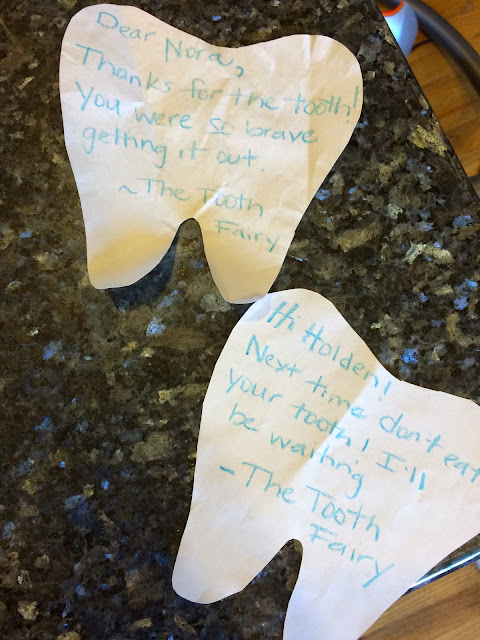 Dear Nora,
Thanks for the tooth!
You were so brave
getting it out.
~The Tooth
Fairy
Hi Holden!
Next time don't eat
your tooth! I'll
be waiting
-The Tooth
Fairy